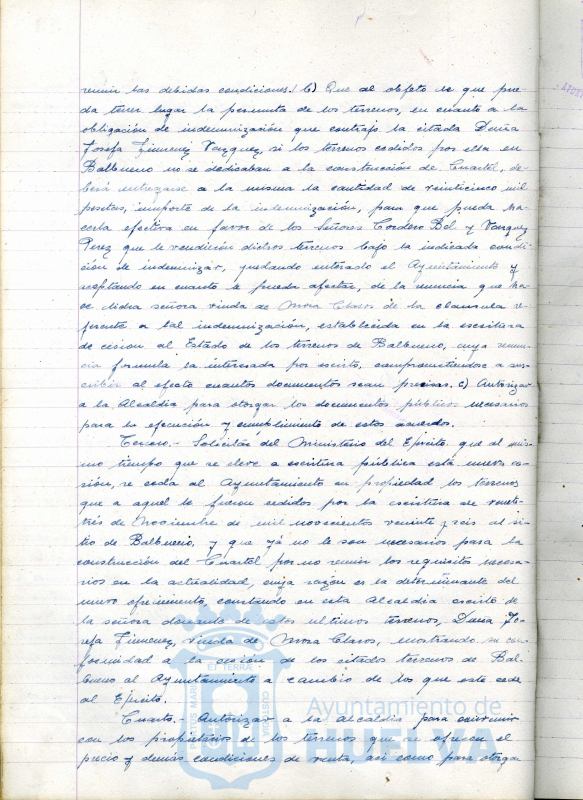 reunir las debidas condiciones. b) Que al objeto de que pue-
da tener lugar la permuta de los terrenos, en cuanto a la
obligación de indemnización que contrajo la citada Doña
Josefa Jimenez Vazquez, si los terrenos cedidos por ella en
Balbueno no se dedicaban a la construcción de Cuartel, de-
berá entregarse a la misma la cantidad de veinticinco mil
pesetas, importe de la indemnización, para que pueda ha-
cerla efectiva en favor de los Señores Cordero Bel y Vazquez
Perez que le vendieron dichos terrenos bajo la indicada condi-
ción de indemnizar, quedando enterado el Ayuntamiento y
aceptando en cuanto le pueda afectar, de la renuncia que ha-
ce dicha señora viuda de Mora Claros de la clausula re-
ferente a tal indemnización, establecida en la escritura
de cesion al Estado de los terrenos de Balbueno, cuya renun-
cia formula la interesada por escrito, comprometiendose a sus-
cribir al efecto cuantos documentos sean precisos. c) Autorizar
a la Alcaldia para otorgar los documentos públicos necesarios
para la ejecución y cumplimiento de estos acuerdos.
Tercero.- Solicitar del Ministerio del Ejército, que al mis-
mo tiempo que se eleve a escritura pública esta nueva ce-
sión, se ceda al Ayuntamiento en propiedad los terrenos
que a aquel le fueron cedidos por la escritura de veinti-
trés de Noviembre de mil novecientos veinte y seis al si-
tio de Balbueno, y que yá no le son necesarios para la
construcción del Cuartel por no reunir los requisitos necesa-
rios en la actualidad, cuya razón es la determinante del
nuevo ofrecimiento, constando en esta Alcaldia escrito de
la señora donante de estos ultimos terrenos, Doña Jo-
sefa Jimenez, viuda de Mora Claros, mostrando su con-
formidad a la cesion de los citados terrenos de Bal-
bueno al Ayuntamiento a cambio de los que este cede
al Ejército.
Cuarto.- Autorizar a la Alcaldia para convenir
con los propietarios de los terrenos que se ofrecen el
precio y demás condiciones de venta, asi como para otorgar
PORTUS MARIS ET TERRAE CUSTODIA
Ayuntamiento de
HUELVA